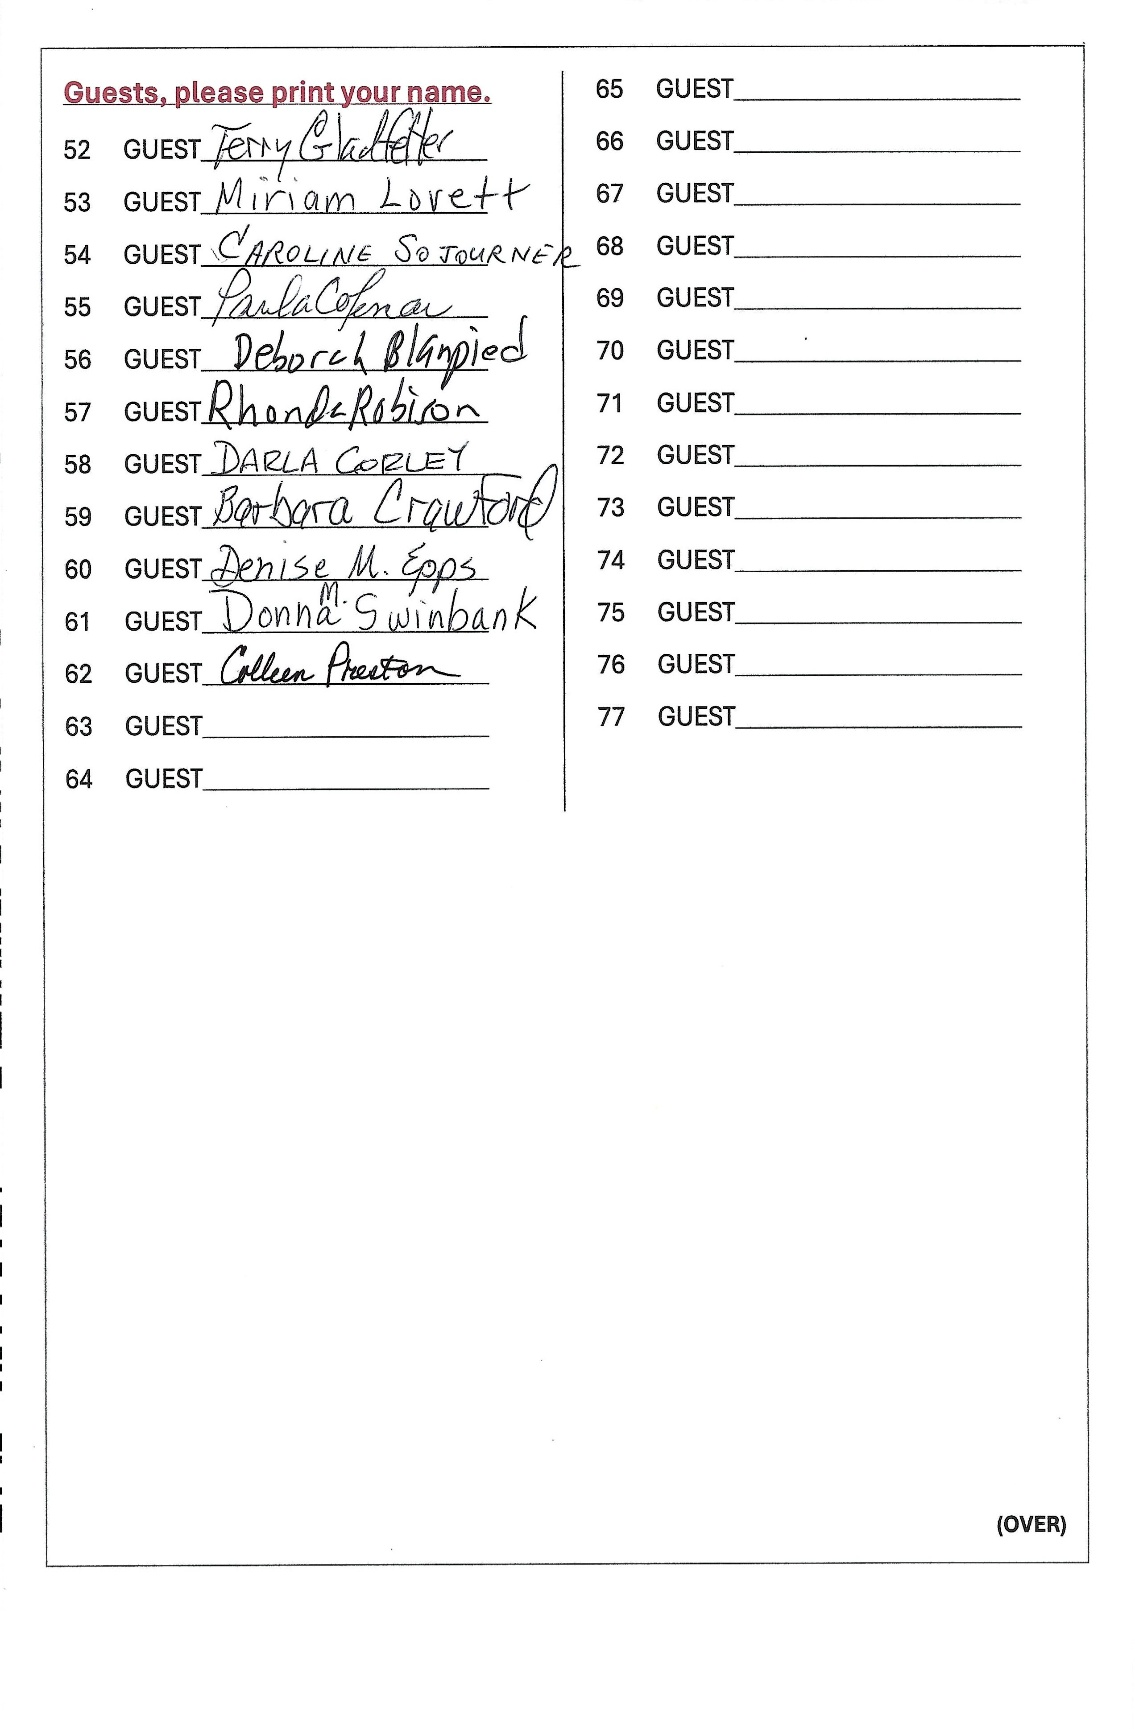 Guests, please print your name.
52 GUEST Terry Gladfelter
53 GUEST Miriam Lovett
54 GUEST CAROLINE SOJOURNER
55 GUEST Paula
56 GUEST Deborah Blanpied
57 GUEST Rhonda Robison
58 GUEST DARLA CORLEY
59 GUEST Barbara Crawford
60 GUEST Denise M. Epps
61 GUEST Donna M. Swinbank
62 GUEST Colleen Preston
63 GUEST
64 GUEST
65 GUEST
66 GUEST
67 GUEST
68 GUEST
69 GUEST
70 GUEST
71 GUEST
72 GUEST
73 GUEST
74 GUEST
75 GUEST
76 GUEST
77 GUEST
(OVER)